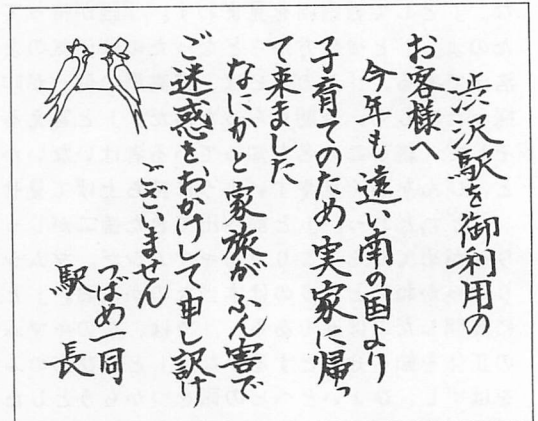 渋沢駅を御利用の
お客様へ
今年も遠い南の国より
子育てため実家に帰っ
て来ました
なにかと家族がふん害で
ご迷惑をおかけして申し訳
ございません
つばめ一同
駅長